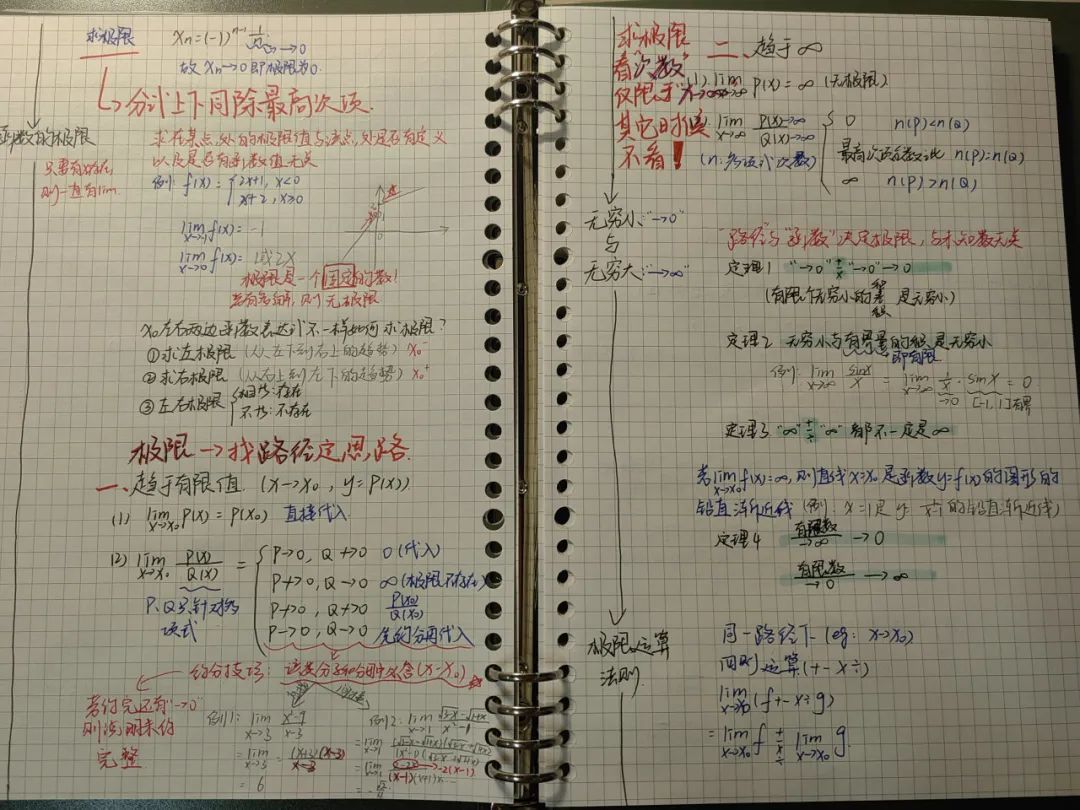 求极限
Xn=(-1)ⁿ⁻¹ 1/n →0
故 Xn→0 即极限为0.
↳分式上下同除最高次项.
函数的极限
求在某点处的极限值与该点处是否有定义
以及是否有函数值无关
只要有好存在,
则一直有lim.
例: f(x)= { 2x+1, x<0
x+2, x≥0
lim x→-1 f(x)= -1
lim x→0 f(x)= 1或2 X
极限是一个固定的数!
若有两个, 则无极限
x₀左右两边函数表达式不一样如何求极限?
①求左极限 (从左下到右上的趋势) x₀⁻
②求右极限 (从右上到左下的趋势) x₀⁺
③左右极限 { 相等:存在
不等:不存在
极限→找路径定思路.
一、趋于有限值. (x→x₀, y=P(x))
(1) lim x→x₀ P(x) = P(x₀) 直接代入
(2) lim x→x₀ P(x)/Q(x) = { P→0, Q↛0 0 (代入)
P↛0, Q→0 ∞ (极限不存在)
P↛0, Q↛0 P(x₀)/Q(x₀)
P→0, Q→0 先约分再代入
P、Q只针对多
项式
约分技巧: 这类分子和分母中必含(x-x₀)
若约完还有"→0"
则说明未约
完整
例1: lim x→3 x²-9/x-3
= lim x→3 (x+3)(x-3)/x-3
= 6
例2: lim x→1
求极限
看"次数"
仅限于x→∞
其它时候
不看!
二、趋于∞
(1) lim x→∞ P(x) = ∞ (无极限)
lim x→∞ P(x)→∞/Q(x)→∞ { 0 n(P)<n(Q)
最高次项系数之比 n(P)=n(Q)
∞ n(P)>n(Q)
(n:多项式次数)
无穷小:"→0"
与
无穷大:"→∞"
"路径"与"函数"决定极限, 与未知数无关
定理1 "→0" ± x "→0" →0
(有限个无穷小的和差积是无穷小)
定理2 无穷小与有界量的积是无穷小
即有限
例: lim x→∞ sinx/x = lim x→∞ 1/x · sinx = 0
→0 [-1,1]有界
定理3 "∞" ± x ÷ "∞" 都不一定是∞
若lim x→x₀ f(x)=∞, 则直线x=x₀是函数y=f(x)的图形的
铅直渐近线 (例: x=1是y= 的铅直渐近线)
定理4 有限数/→∞ →0
有限数/→0 →∞
极限运算
法则.
同一路径下 (eg: x→x₀)
四则运算(+-×÷)
lim x→x₀ (f+-×÷g)
= lim x→x₀ f +-×÷ lim x→x₀ g.